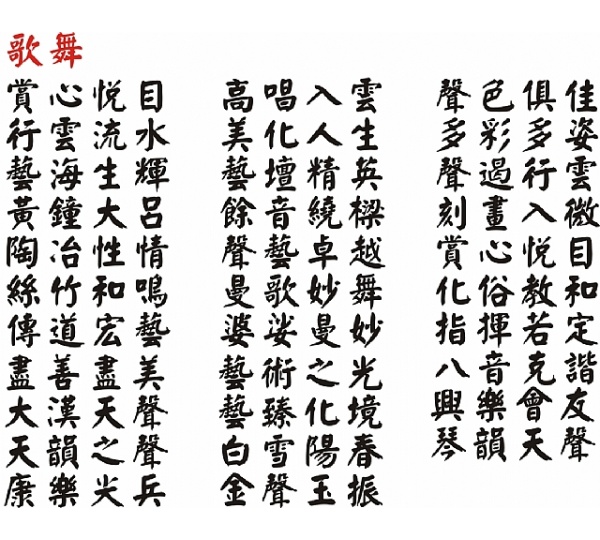 歌舞
賞心悅目
行雲流水
藝海生輝
黃鐘大呂
陶冶性情
絲竹和鳴
傳道宏藝
盡善盡美
大漢天聲
天韻之聲
康樂尖兵
高唱入雲
美化人生
藝壇精英
餘音繞樑
聲藝卓越
曼歌妙舞
婆娑曼妙
藝術之光
藝臻化境
白雪陽春
金聲玉振
聲色俱佳
多彩多姿
聲遏行雲
刻畫入微
賞心悅目
化俗教和
指揮若定
八音克諧
興樂會友
琴韻天聲